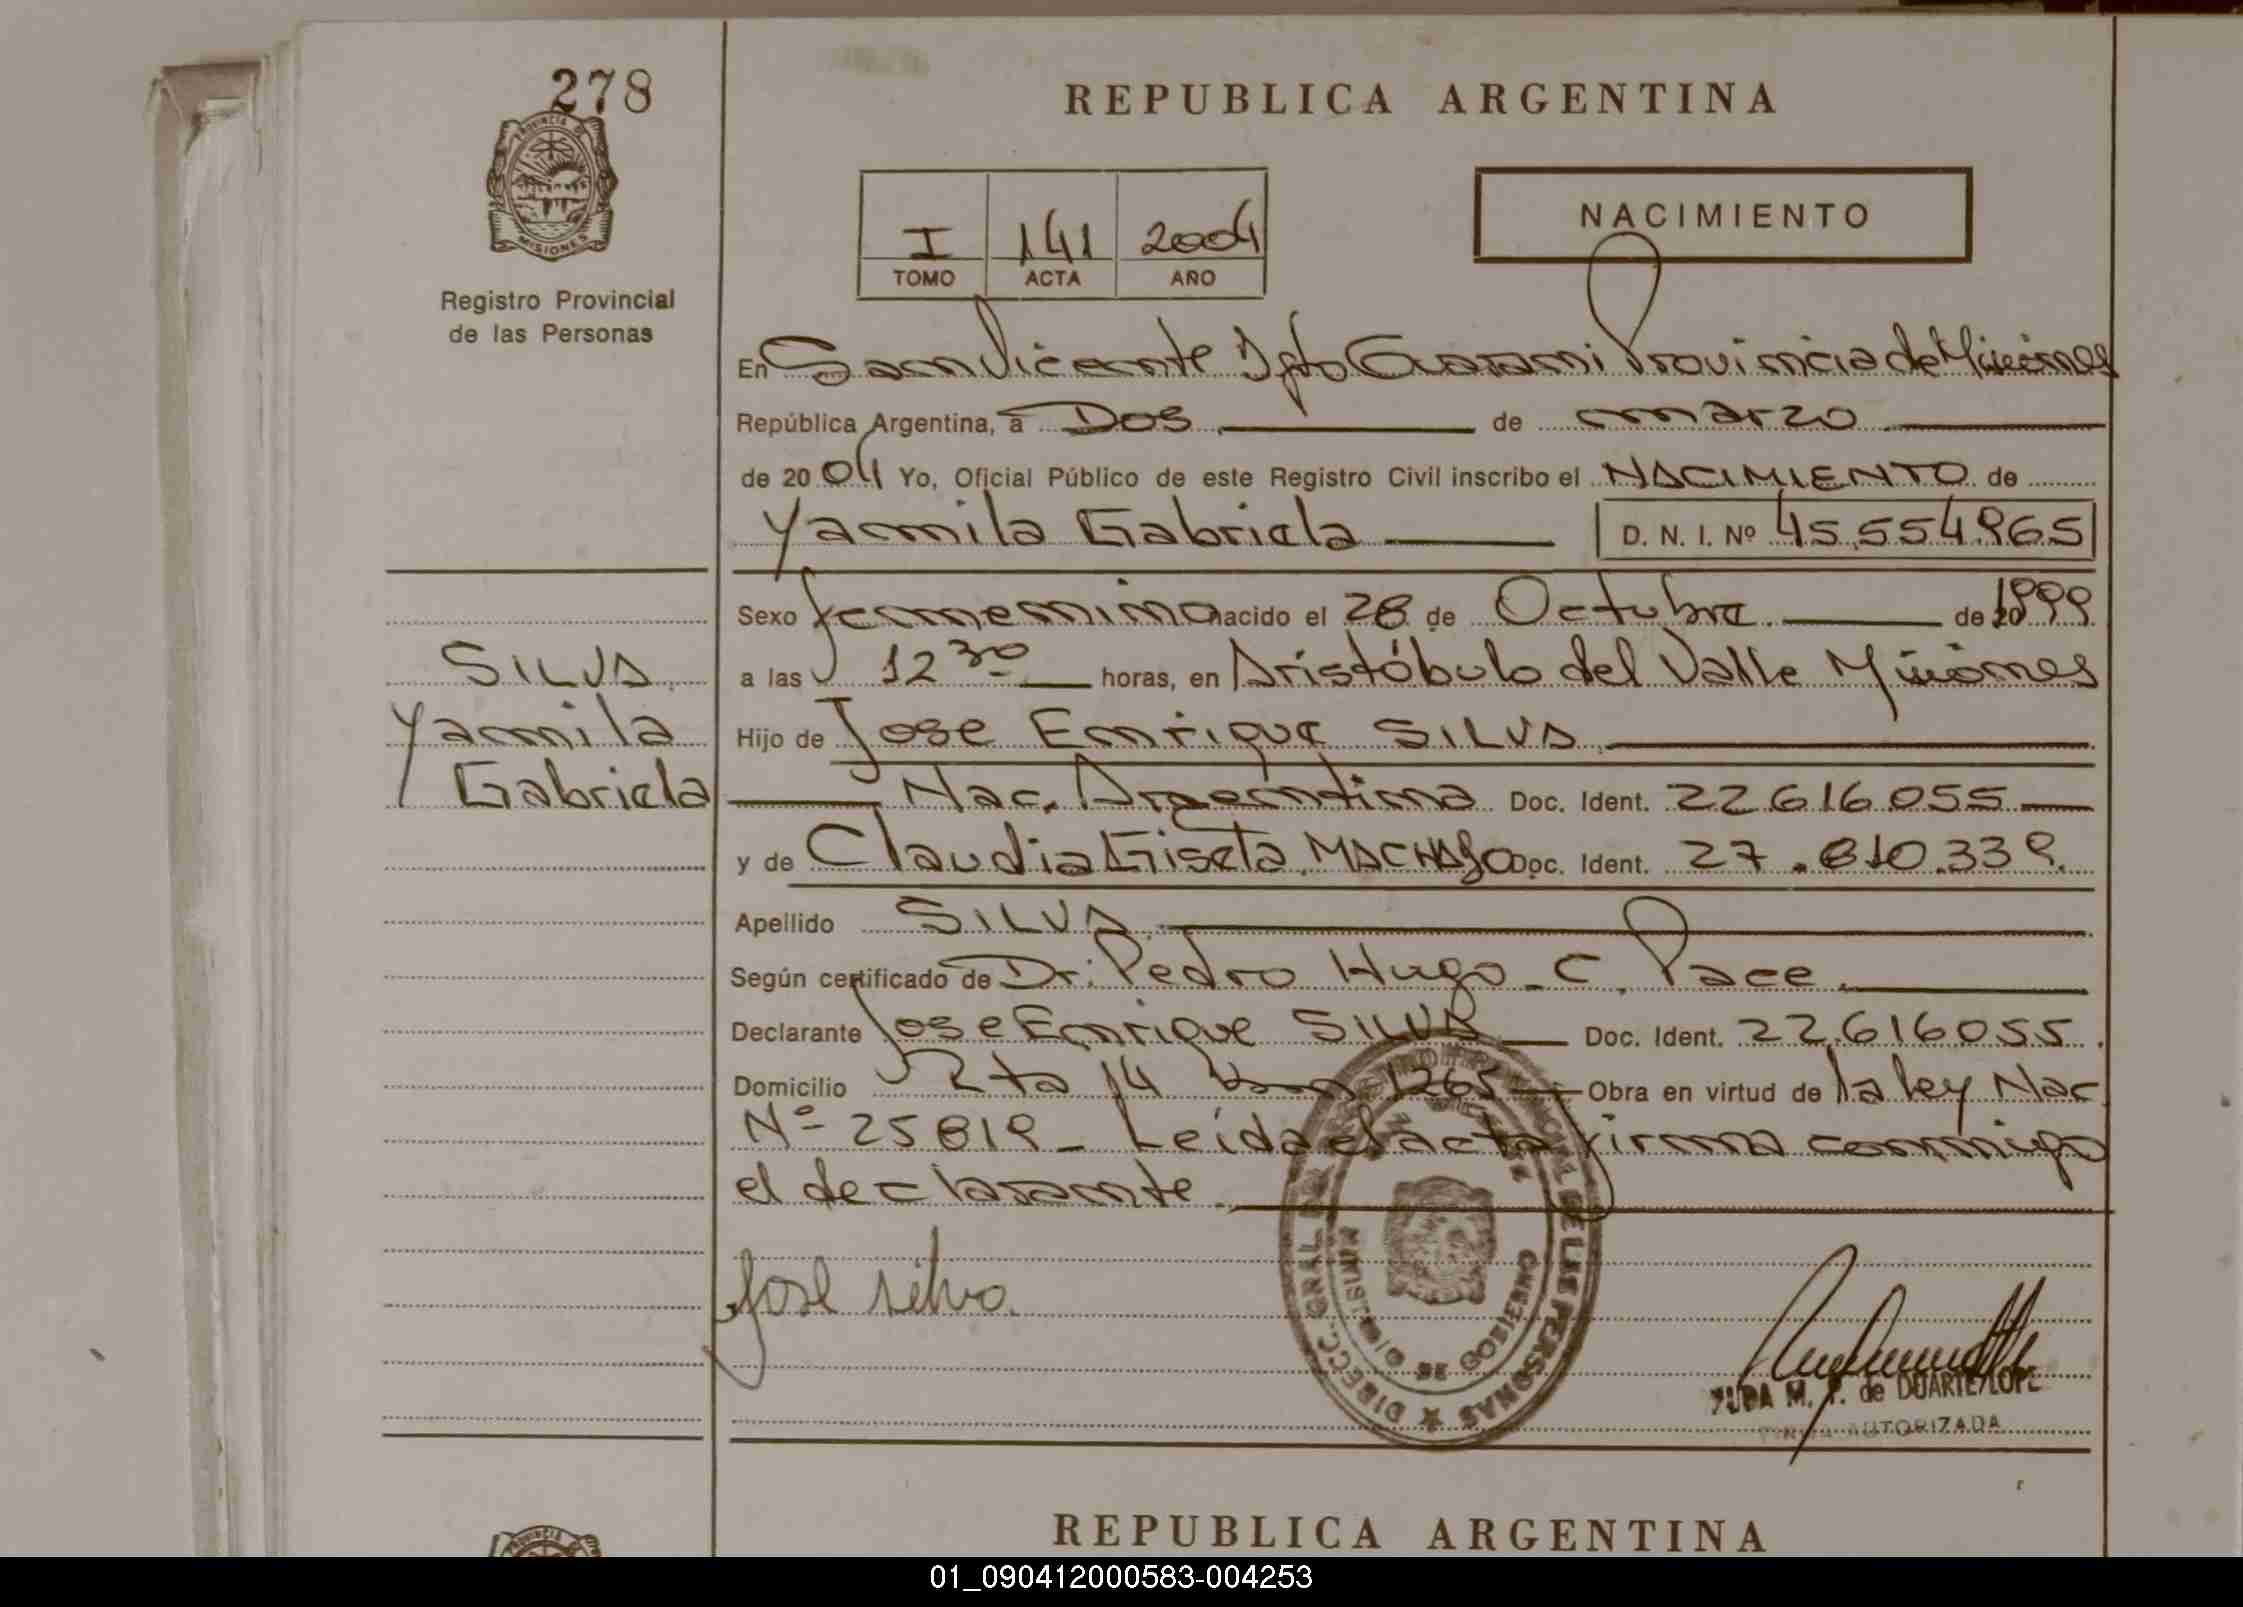 278
PROVINCIA DE
MISIONES
Registro Provincial
de las Personas
REPUBLICA ARGENTINA
I 141 2004
TOMO ACTA AÑO
NACIMIENTO
En San Vicente Dpto Guarani Provincia de Misiones
República Argentina, a Dos de marzo
de 20 04 Yo, Oficial Público de este Registro Civil inscribo el NACIMIENTO de
Yamila Gabriela D. N. I. Nº 45.554.965
Sexo femenino nacido el 28 de Octubre de 1999
a las 12 30 horas, en Aristóbulo del Valle Misiones
Hijo de Jose Enrique SILVA
Nac. Argentina Doc. Ident. 22.616.055
y de Claudia Gisela MACHADO Doc. Ident. 27.810.339.
Apellido SILVA
Según certificado de Dr: Pedro Hugo C. Pace
Declarante Jose Enrique SILVA Doc. Ident. 22.616055.
Domicilio Rta 14 Km 1265 Obra en virtud de la ley Nac
Nº 25819 - Leída el acta firma conmigo
el declarante
SILVA
Yamila
Gabriela
José silva
DIRECC. GRAL. DEL REGISTRO PROVINCIAL DE LAS PERSONAS
MINISTERIO DE GOBIERNO
M. de DUARTE LOPE
FIRMA AUTORIZADA
REPUBLICA ARGENTINA
PROVINCIA
01_090412000583-004253